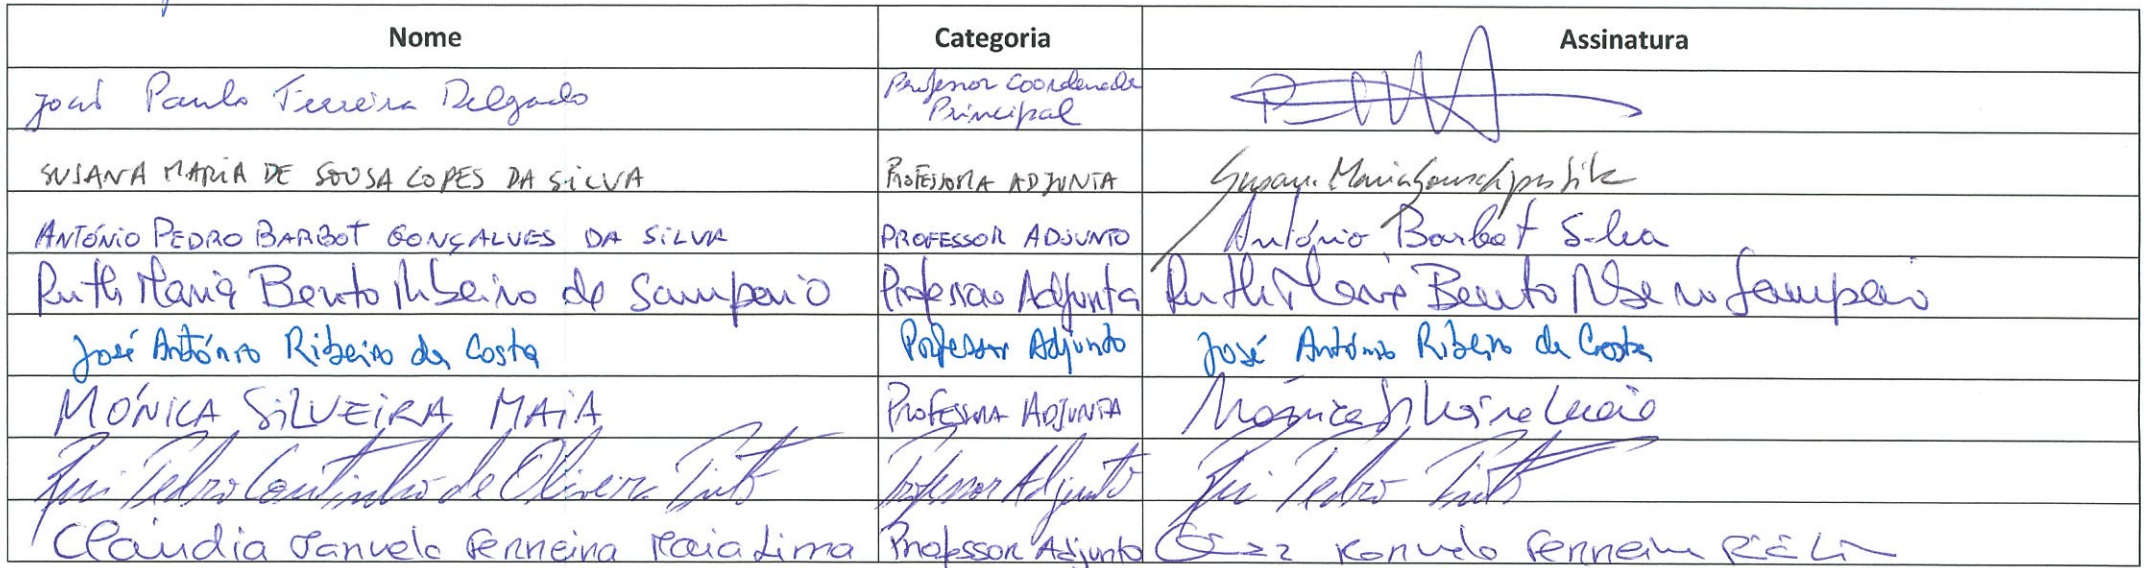 Nome Categoria Assinatura
José Paulo Ferreira Delgado Professor Coordenador
Principal
SUSANA MARIA DE SOUSA LOPES DA SILVA PROFESSORA ADJUNTA Susana Maria Sousa Lopes Silva
ANTÓNIO PEDRO BARBOT GONÇALVES DA SILVA PROFESSOR ADJUNTO António Barbot Silva
Ruth Maria Bento Ribeiro de Sampaio Professora Adjunta Ruth Maria Bento Ribeiro Sampaio
José António Ribeiro da Costa Professor Adjunto José António Ribeiro da Costa
MÓNICA SILVEIRA MAIA PROFESSORA ADJUNTA Mónica Silveira Maia
Rui Pedro Coutinho de Oliveira Pinto Professor Adjunto Rui Pedro Pinto
Cláudia Manuela Ferreira Maia Lima Professor Adjunto Manuela Ferreira